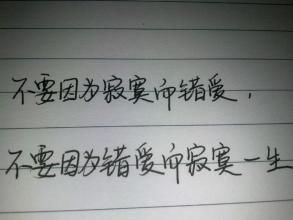 不要因为寂寞而错爱，
不要因为错爱而寂寞一生